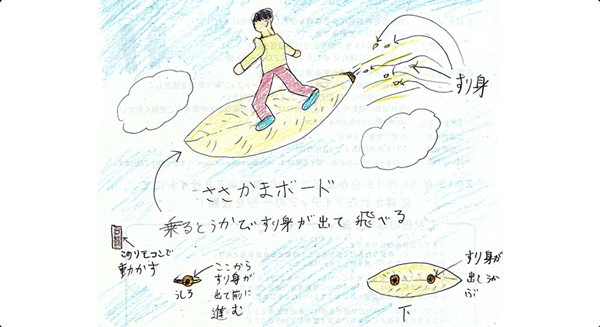 すり身
ささかまボード
乗るとうかび すり身が出て 飛べる
このリモコンで
動かす
うしろ
ここから
すり身が
出て前に
進む
すり身が
出てうか
ぶ
下